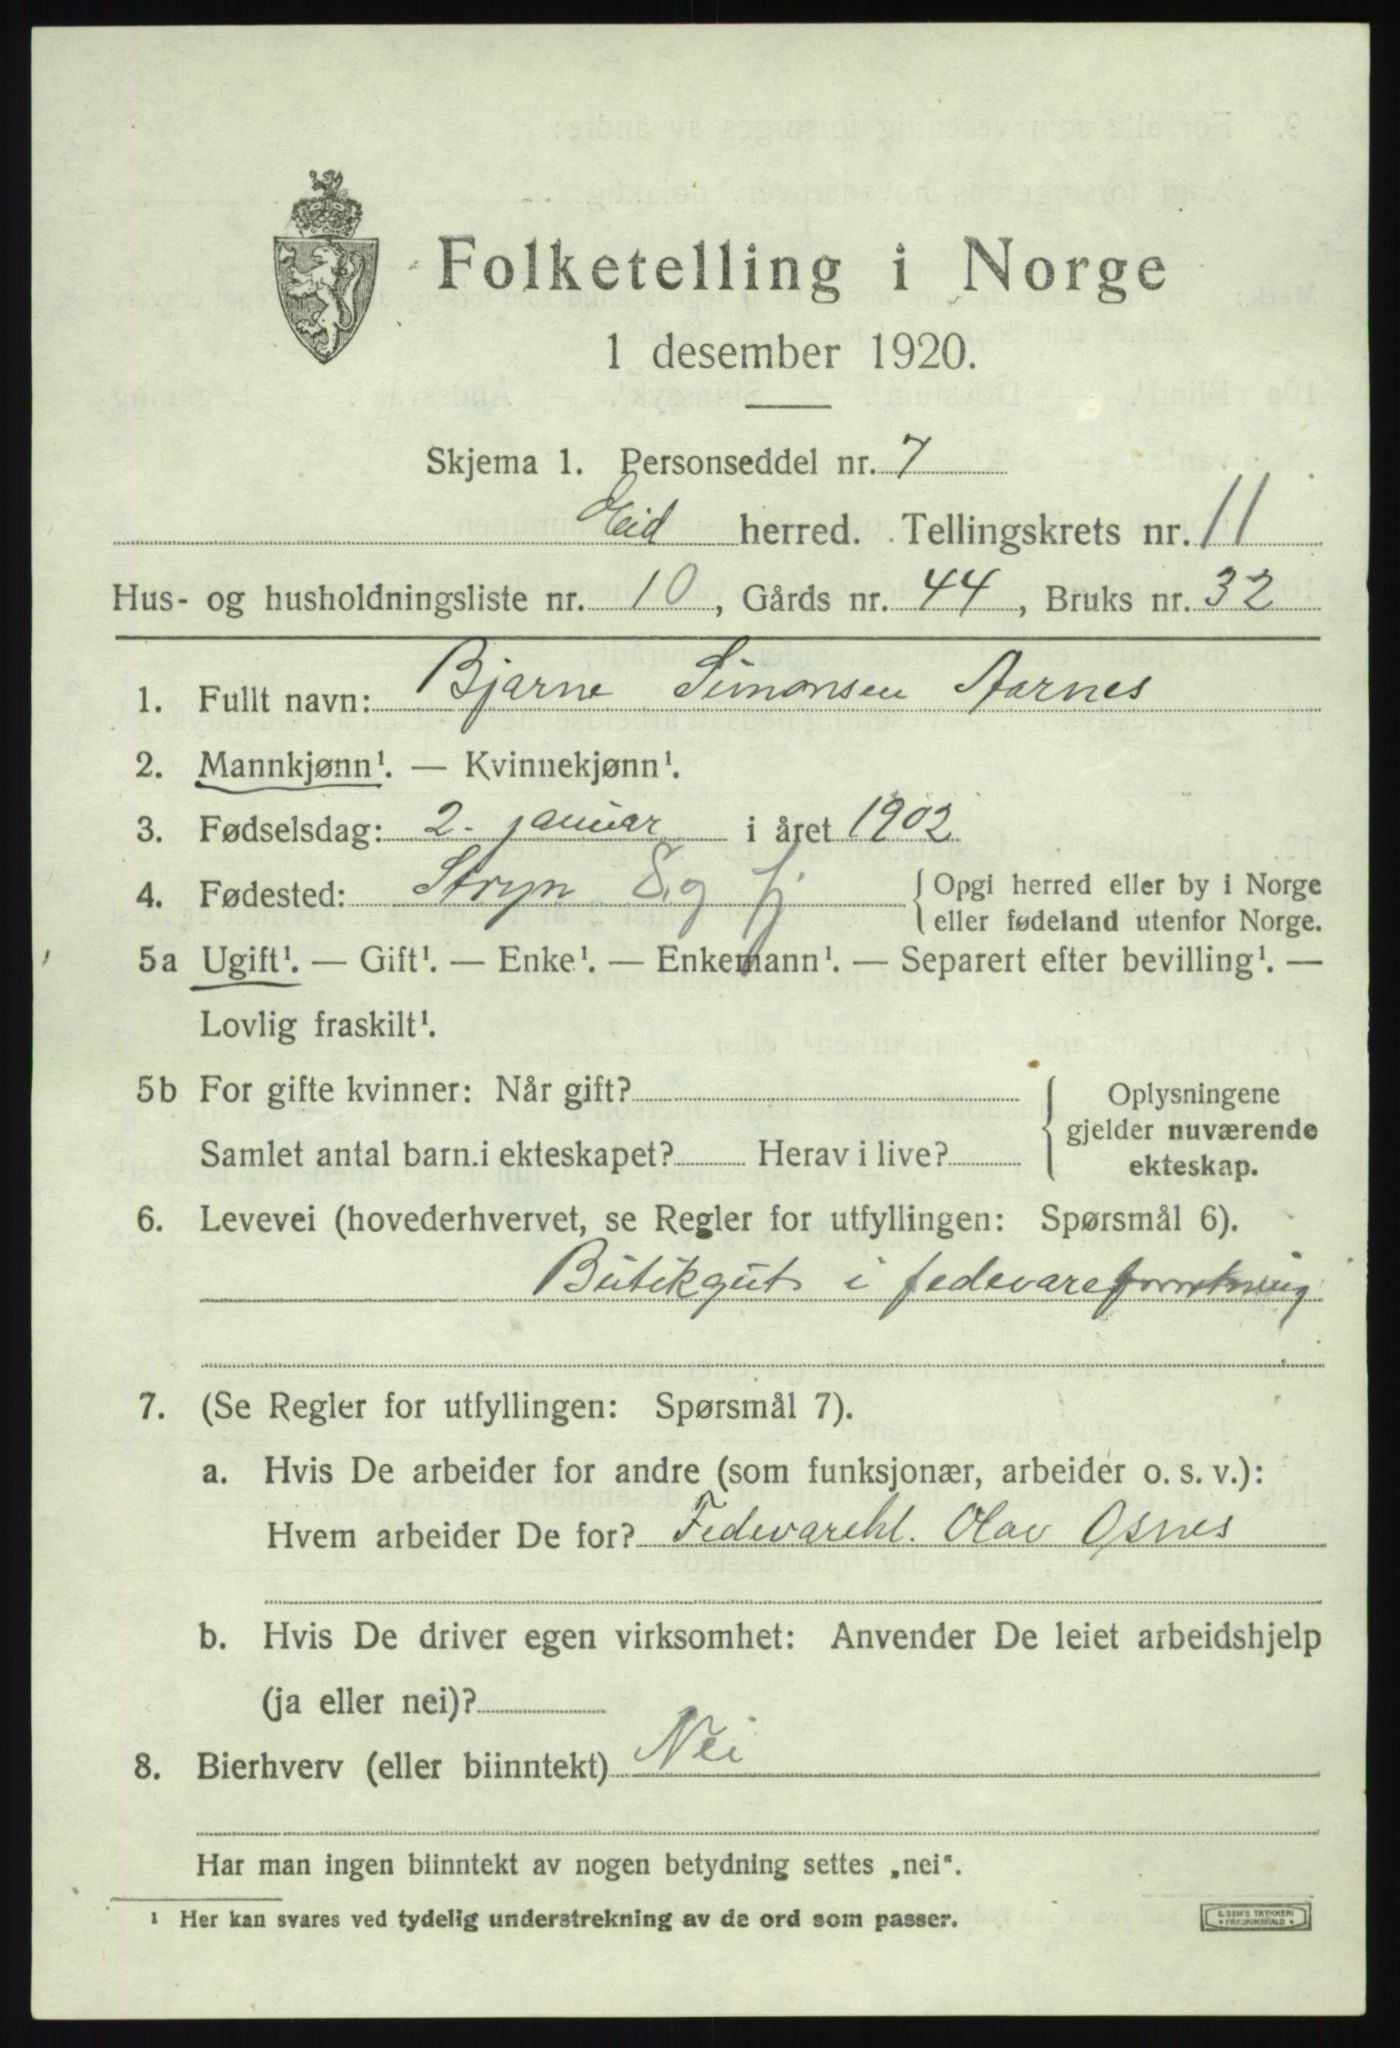 Folketelling i Norge
1 desember 1920.
Skjema 1. Personseddel nr. 7
Eid herred. Tellingskrets nr. 11
Hus- og husholdningsliste nr. 10, Gårds nr. 44, Bruks nr. 32
1. Fullt navn: Bjarne Simonsen Aarnes
2. Mannkjønn¹. — Kvinnekjønn¹.
3. Fødselsdag: 2. januar i året 1902
4. Fødested: Stryn S. og fj Opgi herred eller by i Norge
eller fødeland utenfor Norge.
5a Ugift¹. — Gift¹. — Enke¹. — Enkemann¹. — Separert efter bevilling¹. —
Lovlig fraskilt¹.
5b For gifte kvinner: Når gift? Oplysningene
gjelder nuværende
Samlet antal barn i ekteskapet? Herav i live? ekteskap.
6. Levevei (hovederhvervet, se Regler for utfyllingen: Spørsmål 6).
Butikgut i fedevareforretning
7. (Se Regler for utfyllingen: Spørsmål 7).
a. Hvis De arbeider for andre (som funksjonær, arbeider o. s. v.):
Hvem arbeider De for? Fedevarehl. Olav Osnes
b. Hvis De driver egen virksomhet: Anvender De leiet arbeidshjelp
(ja eller nei)?
8. Bierhverv (eller biinntekt) Nei
Har man ingen biinntekt av nogen betydning settes „nei“.
¹ Her kan svares ved tydelig understrekning av de ord som passer.
E. SEM'S TRYKKERI
FREDRIKSHALD